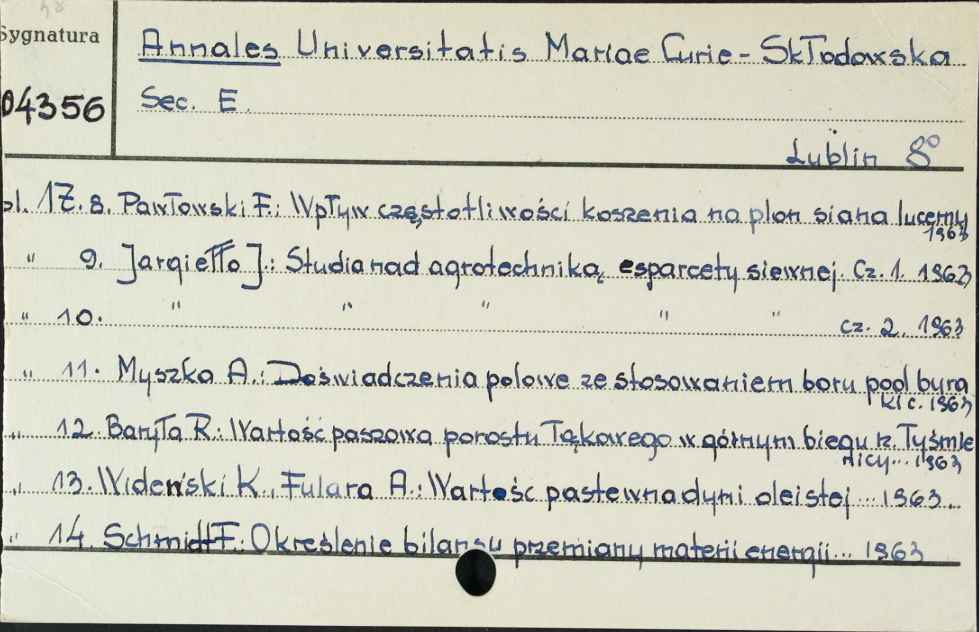 Sygnatura
Annales Universitatis Mariae Curie - Skłodowska
04356
Sec. E.
Lublin 8°
ol. 17. 8. Pawłowski F.: Wpływ częstotliwości koszenia na plon siana lucerny
1963
" 9. Jargiełło J.: Studia nad agrotechniką esparcety siewnej. Cz. 1. 1963
" 10. " " " " " cz. 2. 1963
" 11. Myszka A.: Doświadczenia polowe ze stosowaniem boru pod bura
ki c. 1963
" 12. Baryła R.: Wartość paszowa porostu łąkowego w górnym biegu rz. Tyśmie
nicy... 1963
" 13. Wideński K., Fulara A.: Wartość pastewna dyni oleistej ... 1963...
" 14. Schmidt F.: Określenie bilansu przemiany materii energii... 1963